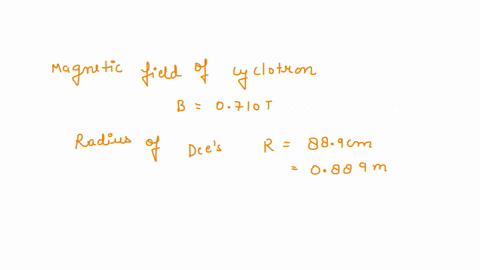 Magnetic field of cyclotron
B = 0.710 T
Radius of Dee's R = 88.9cm
= 0.889 m